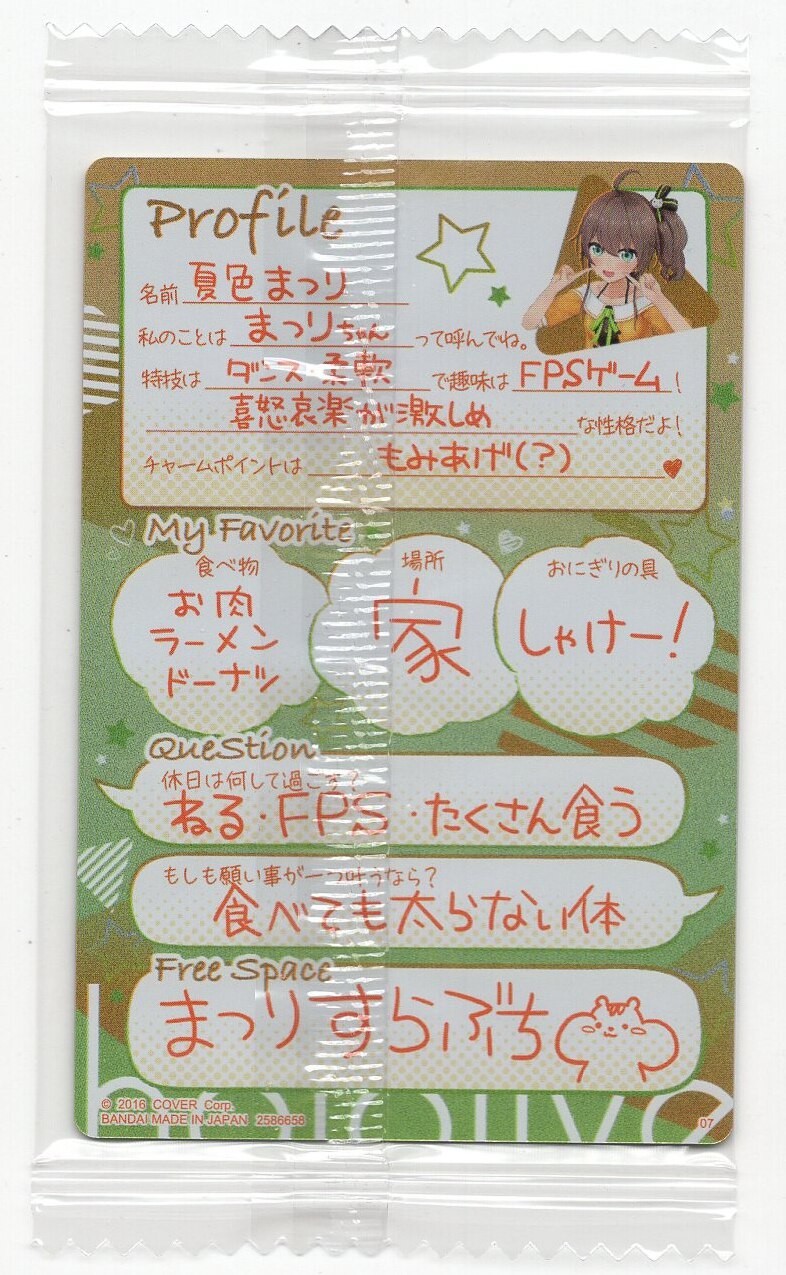 Profile
名前 夏色まつり
私のことは まつりちゃん って呼んでね。
特技は ダンス 柔軟 で趣味は FPSゲーム !
喜怒哀楽が激しめ な性格だよ!
チャームポイントは もみあげ(?)
My Favorite
食べ物
お肉
ラーメン
ドーナツ
場所
家
おにぎりの具
しゃけー!
Question
休日は何して過ごす?
ねる・FPS・たくさん食う
もしも願い事が一つ叶うなら?
食べても太らない体
Free Space
まつりすらぶち
hololive
© 2016 COVER Corp.
BANDAI MADE IN JAPAN 2586658
07